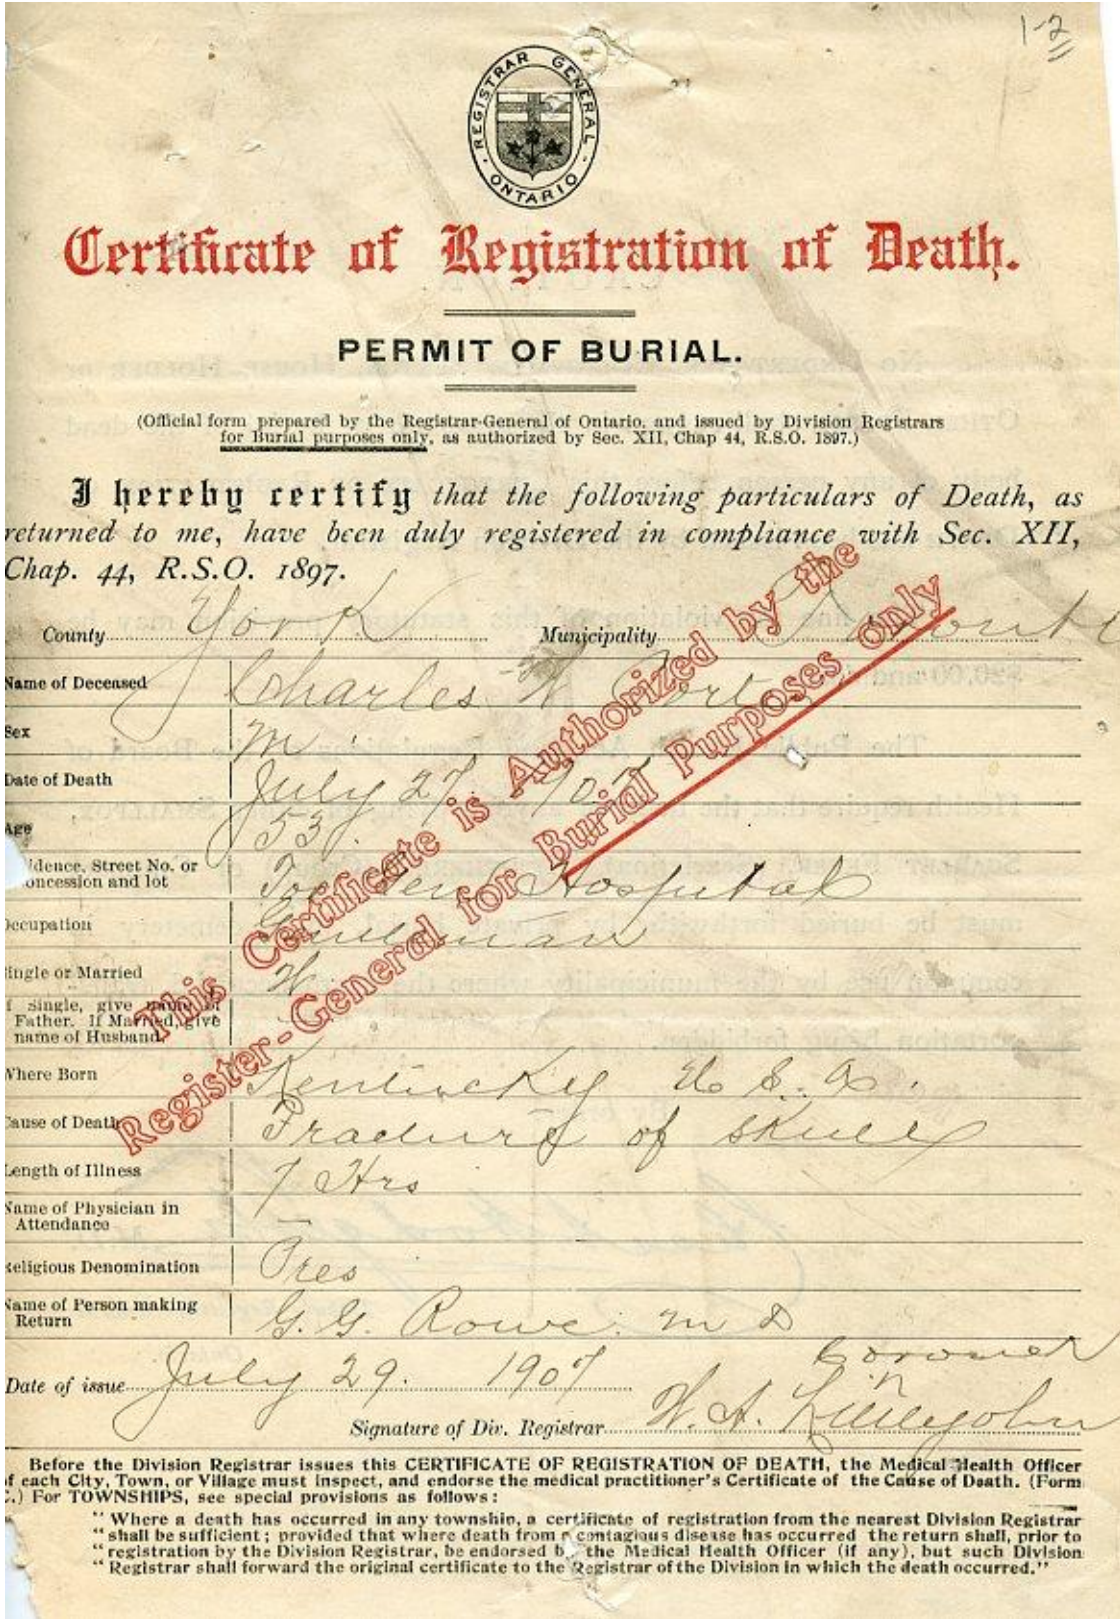 1-2
REGISTRAR GENERAL
ONTARIO
Certificate of Registration of Death.
PERMIT OF BURIAL.
(Official form prepared by the Registrar-General of Ontario, and issued by Division Registrars
for Burial purposes only, as authorized by Sec. XII, Chap 44, R.S.O. 1897.)
I hereby certify that the following particulars of Death, as
returned to me, have been duly registered in compliance with Sec. XII,
Chap. 44, R.S.O. 1897.
County York Municipality Toronto
Name of Deceased Charles W Porter
Sex M.
Date of Death July 27. 1907
Age 53.
idence, Street No. or
oncession and lot Tor Gen Hospital
ccupation Gentleman
ingle or Married W.
f single, give name of
Father. If Married, give
name of Husband.
Where Born Kentucky U. S. A.
Cause of Death Fracture of skull
Length of Illness 7 Hrs
Name of Physician in
Attendance —
Religious Denomination Pres
Name of Person making
Return G. G. Rowe. M D
Coroner
Date of issue July 29. 1907
Signature of Div. Registrar W. A. Littlejohn
This Certificate is Authorized by the
Register-General for Burial Purposes only
Before the Division Registrar issues this CERTIFICATE OF REGISTRATION OF DEATH, the Medical Health Officer
of each City, Town, or Village must inspect, and endorse the medical practitioner's Certificate of the Cause of Death. (Form
C.) For TOWNSHIPS, see special provisions as follows:
"Where a death has occurred in any township, a certificate of registration from the nearest Division Registrar
"shall be sufficient; provided that where death from contagious disease has occurred the return shall, prior to
"registration by the Division Registrar, be endorsed by the Medical Health Officer (if any), but such Division
"Registrar shall forward the original certificate to the Registrar of the Division in which the death occurred."